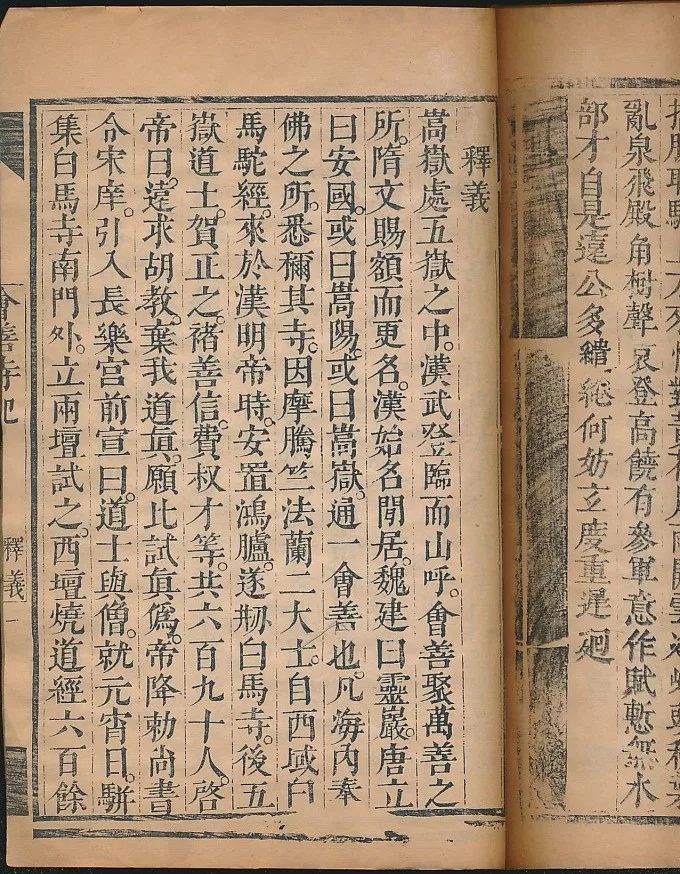 亂泉飛殿角樹聲哀登高饒有參軍意作賦慙無水
部才自是遠公多繾綣何妨立度重遲廻
釋義
嵩嶽處五嶽之中。漢武登臨而山呼。會善聚萬善之
所。隋文賜額而更名。漢始名閒居。魏建曰靈巖。唐立
曰安國。或曰嵩陽。或曰嵩嶽。通一會善也。凡海內奉
佛之所。悉稱其寺。因摩騰竺法蘭二大士。自西域白
馬駝經。來於漢明帝時。安置鴻臚。遂剏白馬寺。後五
嶽道士。賀正之。褚善信。費权才等。共六百九十人。啓
帝曰。遠求胡教。棄我道眞。願比試眞僞。帝降勅尚書
令宋庠。引入長樂宮前宣曰。道士與僧。就元宵日。駢
集白馬寺南門外。立兩壇試之。西壇燒道經六百餘
會善寺記
釋義
一